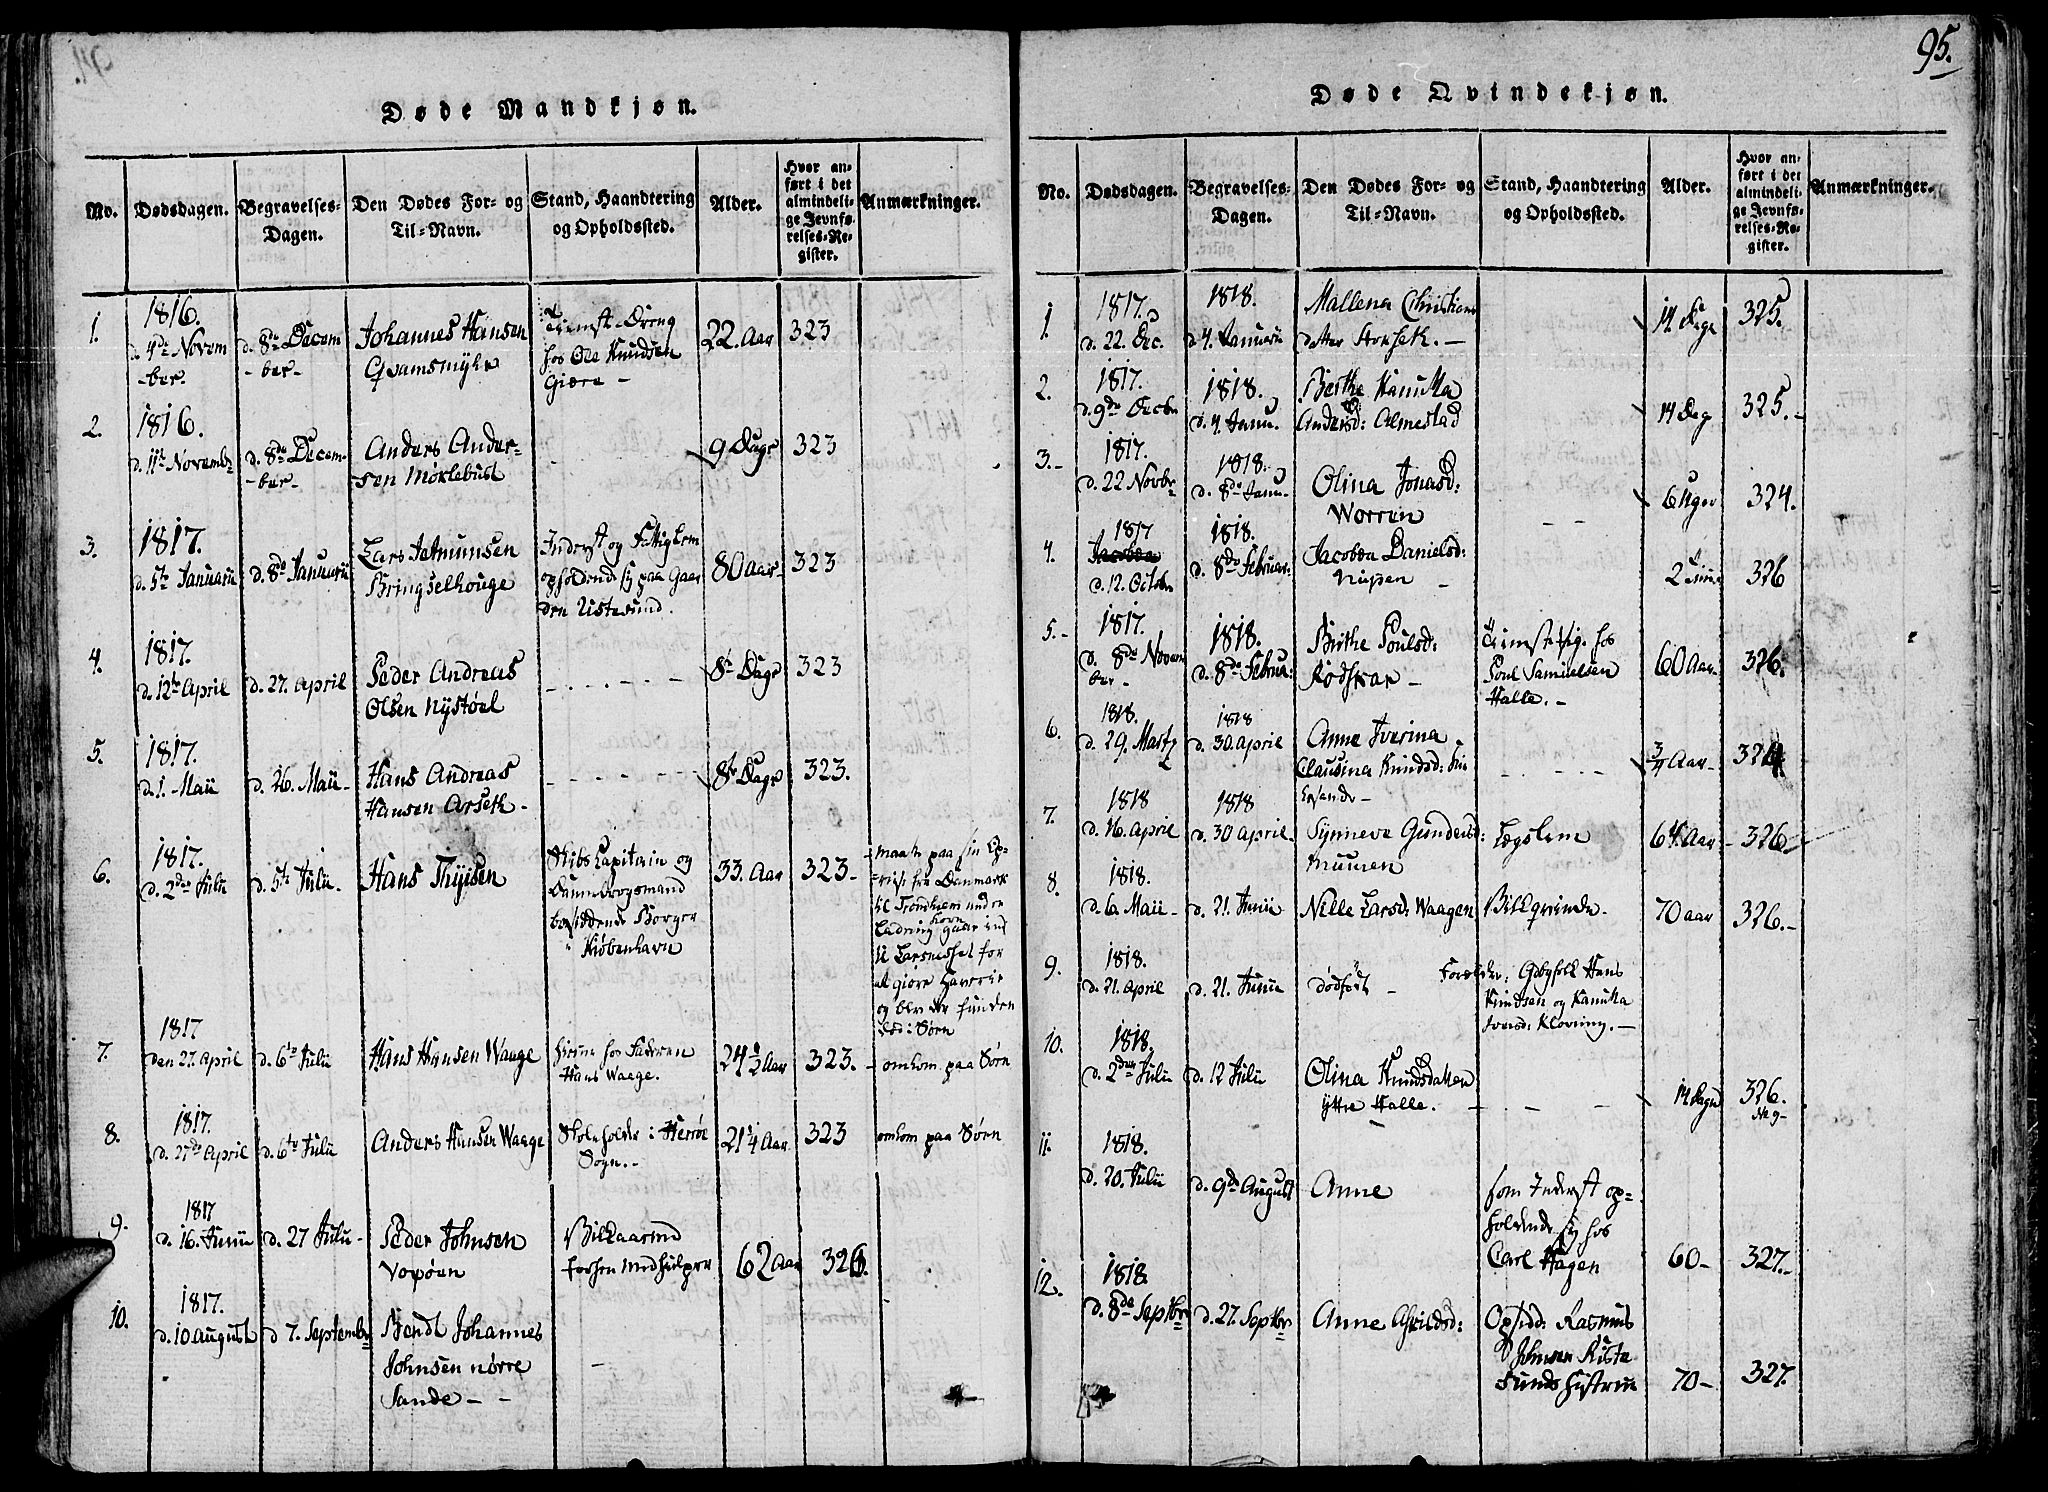 95.
Døde Mandkjøn.
No. Dødsdagen. Begravelses-Dagen. Den Dødes For- og Til-Navn. Stand, Haandtering og Opholdssted. Alder. Hvor anført i det almindelige Jevnførelses-Register. Anmærkninger.
1. 1816. d. 4de November. d. 8de December- Johannes Hansen Qvamsmyhr Tienste-Dreng hos Ole Knudsen Giære - 22. Aar 323
2. 1816. d. 11te Novembr d. 8de December- Anders Andersen Møklebust 9 Dage 323
3. 1817. d. 5te Januarii d. 8de Januarii Lars Jetmundsen Bringselhouge Inderst og Fattiglem opholdende sig paa Gaarden Ristesund. 80 Aar- 323
4. 1817. d. 12te April d. 27. April Peder Andreas Olsen Nystøel 8te Dage 323
5. 1817. d. 1. Maii d. 26. Maii- Hans Andreas Hansen Arseth- 8te Dage 323.
6. 1817. d. 2den Julii d. 5te Julii- Hans Thyesen Skibs Capitain og Dannebrogsmand boesiddende Borger i Kiøbenhavn 33. Aar 323- maatte paa sin Opreise fra Danmark til Trondhiem under Korn Ladning gaae ind til Larsnesset for at giøre Haverie og blev der funden død i Søen
7. 1817 den 27. April d. 6te Julii Hans Hansen Waage hiemme hos Faderen Hans Waage. 24 1/2 Aar 323. - omkom paa Søen
8. 1817. d. 27de April d. 6te Julii Anders Hansen Waage Skoleholder i Herrøe Sogn.- 21 1/4 Aar 323 omkom paa Søen
9. 1817 d. 16. Junii d. 27 Julii- Peder Johnsen Voxøen Bilkaarmd forhen medhielper 62 Aar 326.
10. 1817. d. 10 August d 7. Septembr Bendt Johannes Johnsen nørre Sande- - 
Døde Qvindekjøn.
No. Dødsdagen. Begravelses-Dagen. Den Dødes For- og Til-Navn. Stand, Haandtering og Opholdssted. Alder. Hvor anført i det almindelige Jevnførelses-Register. Anmærkninger.
1. 1817. d. 22. Dec. 1818. d 4. Januarii Mallena Christiansdatter Storsæth. - 14 Dage 325.
2. 1817. d. 9de Decbr 1818. d. 4. Janu. Berthe Kanutta Andersd: Almestad 14 Dag 325.-
3.- 1817. d. 22 Novbr 1818. d. 8de Janu- Olina Jonasd: Worren 6 Uger 324.
4. 1817 Jacobea d. 12. Octobr 1818. d. 8de Februar: Jacobea Danielsd: Nupen - 2 Timer 326
5.- 1817. d. 8de November- 1818. d. 8de Februar: Birthe Poulsd: Rødskar - Tienstepig. hos Poul Samuelsen Halle. - 60 Aar 326.
6. 1818. d. 29. Martz 1818 d. 30. April Anne Iverina Clausina Knudsd: 3/4 Aar- 324
7. 1818 d. 16 April 1818 d. 30 April- Synneve Gundersd: Muuren Lægslem 64. Aar - 326
8. 1818. d. 6. Maii - d. 21. Junii Nille Larsd: Waagen Vilkqvinde. 70 aar 326.-
9. 1818. d. 21. April d. 21. Junii dødfødt - Forældre: Gaardfolk Hans Knudsen og Kanutta Iversd: Kløvning. -
10. 1818. d. 2den Julii d. 12 Julii Olina Knudsdatter Yttre Halle. 14 Dage 326. No 9-
11. 1818. d. 20. Julii d. 9de August Anne som Inderst opholdende sig hos Carl Hagen 60- 327.-
12. 1818. d. 8de Septbr d. 27. Septbr Anne Eskildsd: Opsidd: Rasmus Johnsen Ristesunds Hustrue 70- 327.